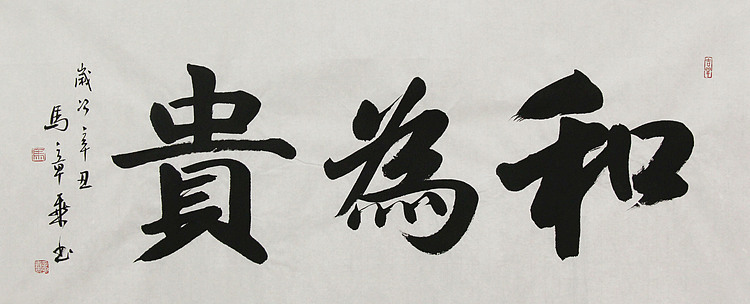 和為貴
歲次辛丑
馬章乘書